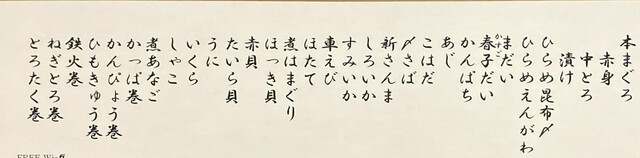 本まぐろ
赤身
中とろ
漬け
ひらめ昆布〆
ひらめえんがわ
まだい
春子だい
かすご
かんぱち
あじ
こはだ
〆さば
新さんま
しろいか
すみいか
車えび
ほたて
煮はまぐり
ほっき貝
赤貝
たいら貝
うに
いくら
しゃこ
煮あなご
かっぱ巻
かんぴょう巻
ひもきゅう巻
鉄火巻
ねぎとろ巻
どろたく巻
FREE Wi-Fi